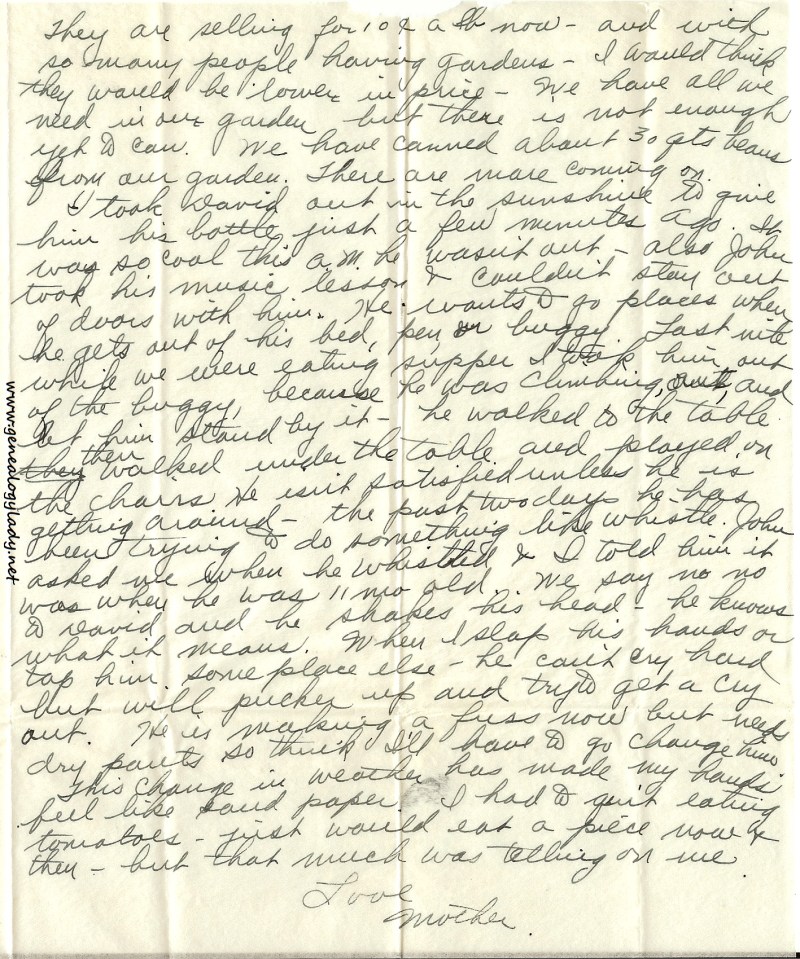 They are selling for 10¢ a lb now - and with
so many people having gardens - I would think
they would be lower in price - We have all we
need in our garden but there is not enough
yet to can. We have canned about 30 qts beans
from our garden. There are more coming on.
I took David out in the sunshine to give
him his bottle just a few minutes ago. It
was so cool this a.m. he wasn't out - also John
took his music lesson & couldn't stay out
of doors with him. He wants to go places when
he gets out of his bed, pen or buggy. Last nite
while we were eating supper I took him out
of the buggy, because he was climbing out, and
let him stand by it - he walked to the table
they then walked under the table and played on
the chairs He isn't satisfied unless he is
getting around - the past two days he has
been trying to do something like whistle. John
asked me when he whistled & I told him it
was when he was 11 mo old. We say no no
to David and he shakes his head - he knows
what it means. When I slap his hands or
tap him some place else - he can't cry hard
but will pucker up and try to get a cry
out. He is making a fuss now but needs
dry pants so think I'll have to go change him
This change in weather has made my hands
feel like sand paper. I had to quit eating
tomatoes - just would eat a piece now &
then - but that much was telling on me.
Love
Mother.
www.genealogylady.net